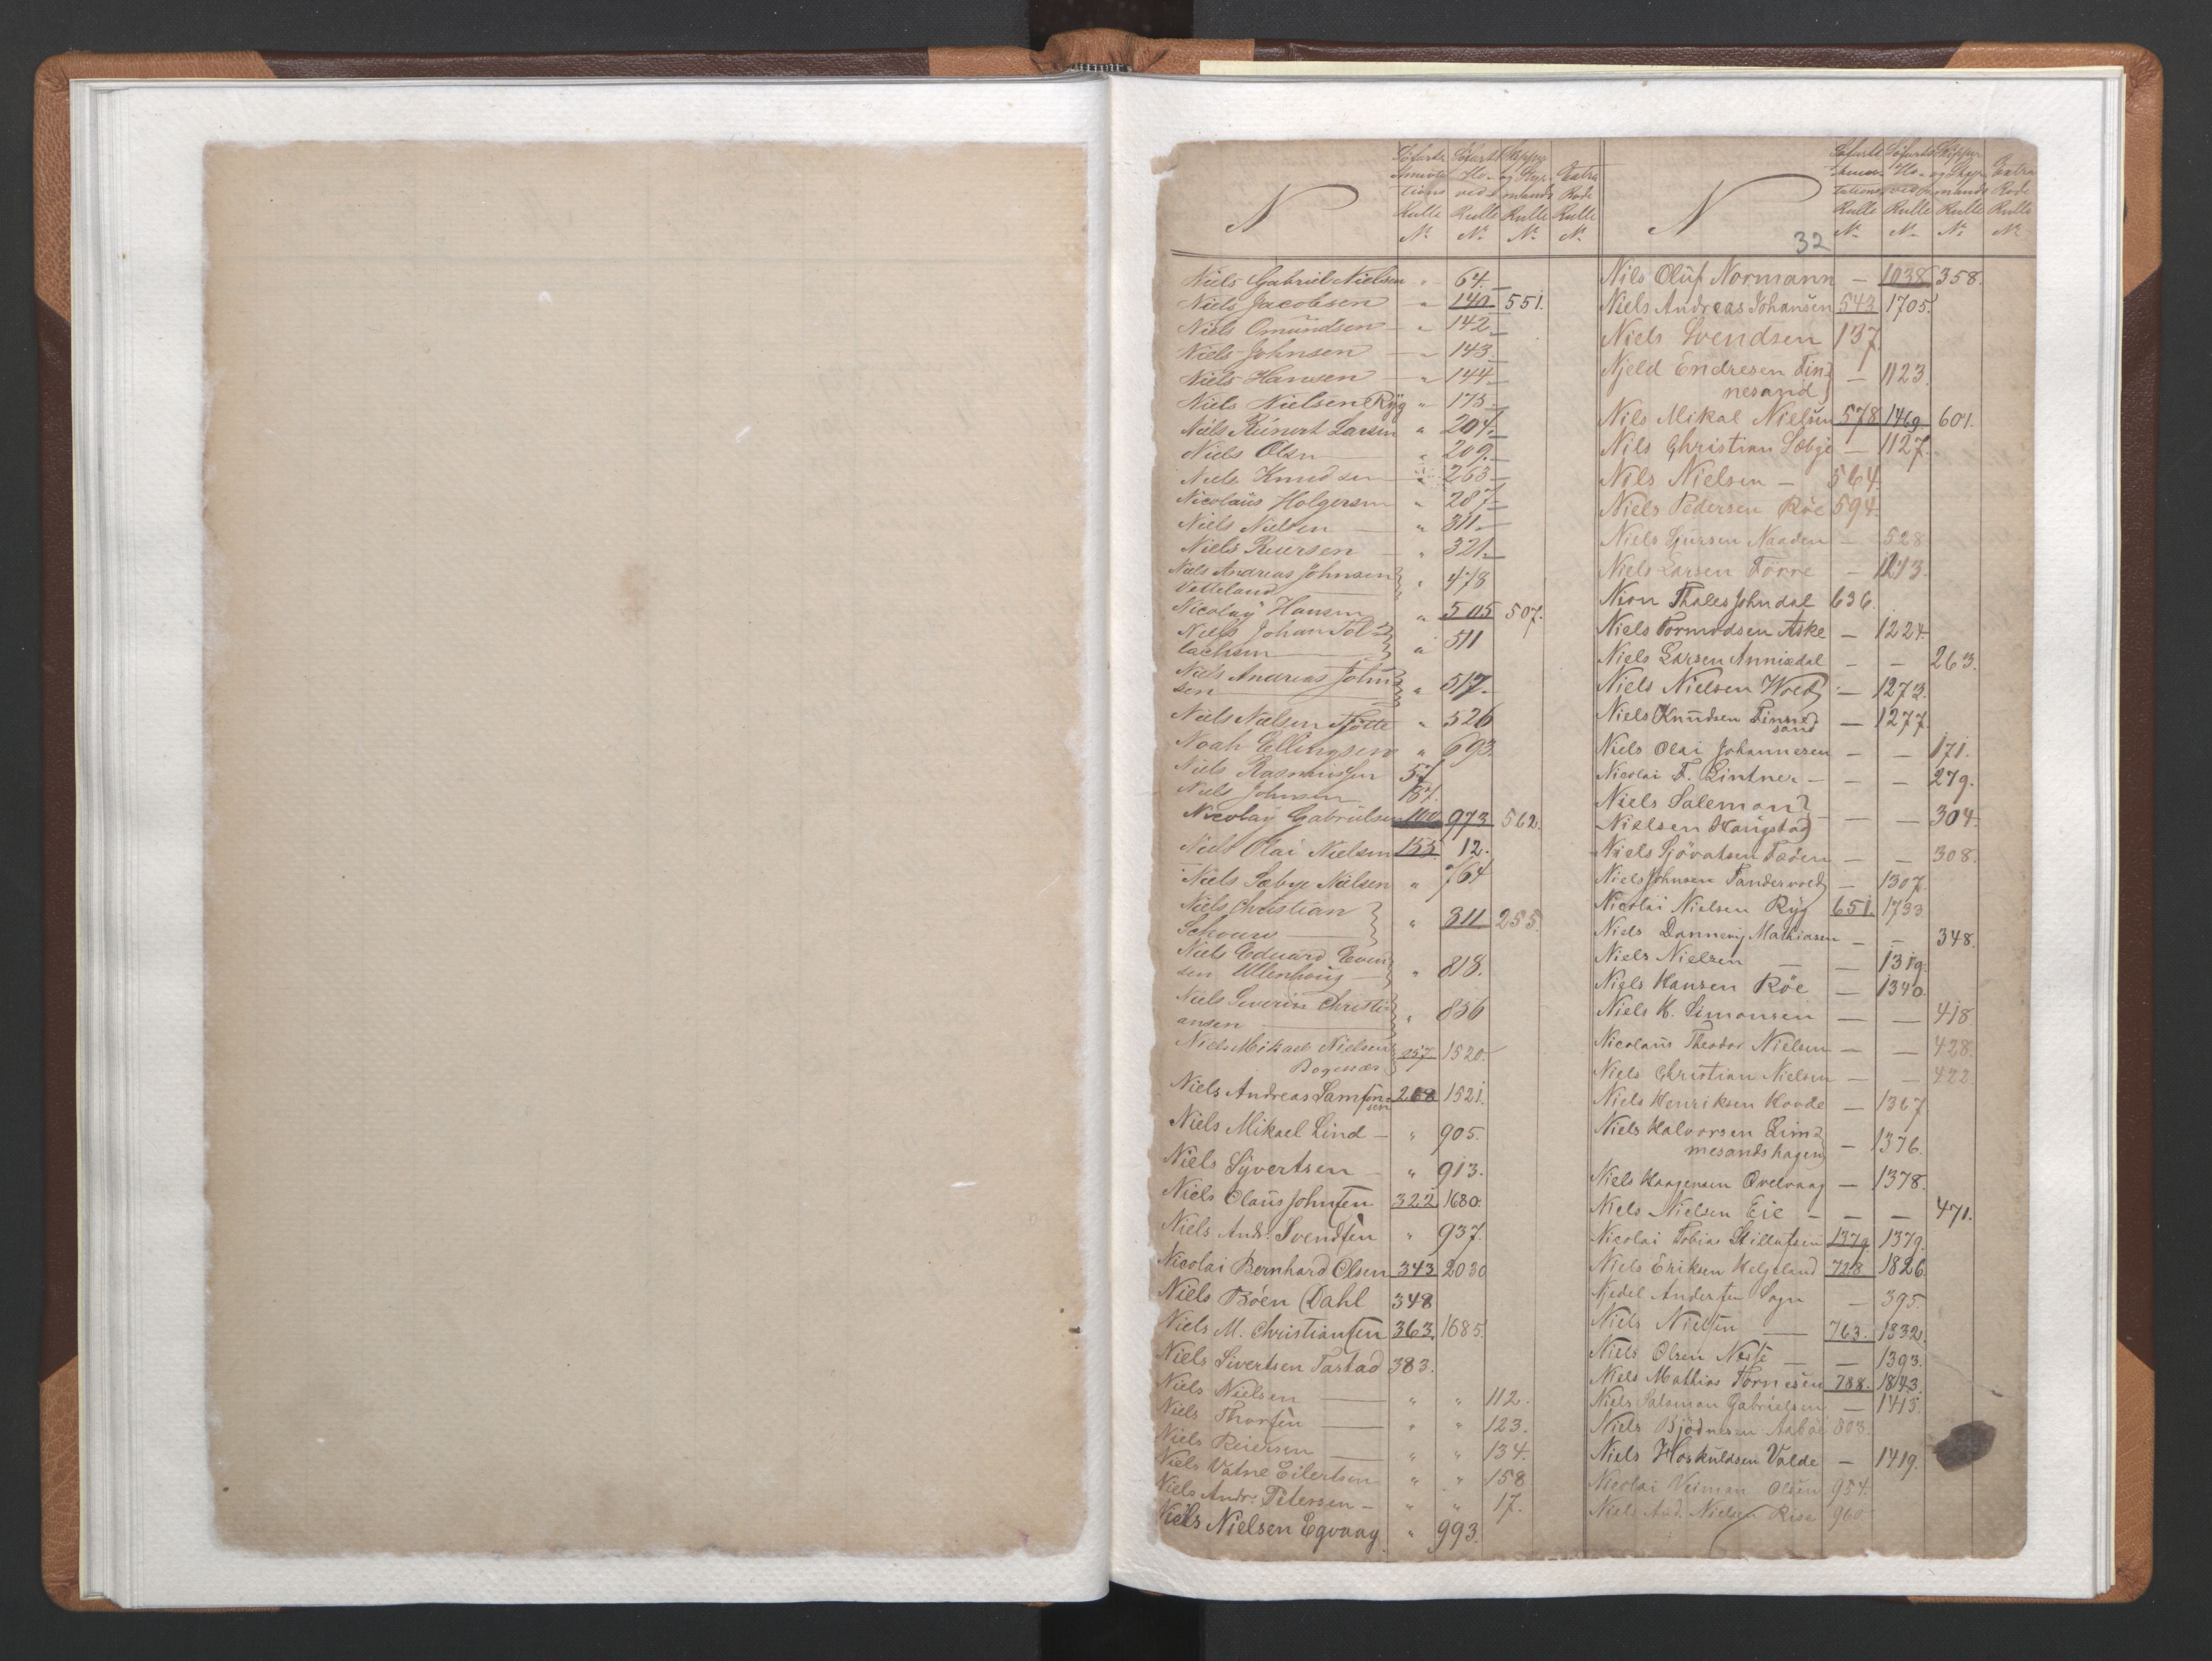 N
Rulle Rulle Rulle Rulle
No No No No
Niels Gabriel Nielsen " 64.
Niels Jacobsen " 140 551.
Niels Omundsen " 142
Niels Johnsen " 143
Niels Hansen " 144
Niels Nielsen Ryg " 175
Niels Reinert Larsen " 204
Niels Olsen " 209.
Niels Knudsen " 263
Nicolaus Holgersen " 287
Niels Nielsen " 311
Niels Reiersen " 321
Niels Andreas Johnsen
" 478
Nicolay Hansen " 505 507.
Niels Johan Tol-
lachsen " 511
Niels Andreas John-
sen " 517.
Niels Nielsen " 526
Noah Ellingsen " 693.
Niels Rasmussen 57
Niels Johnsen
Nicolay Gabrielsen 100 973 562.
Niels Olai Nielsen 155 12.
Niels Sæbye Nielsen " 764
Niels Christian
" 311 255.
Niels Eduard Even-
sen " 818.
Niels Severin Christi-
ansen " 856
Niels Mikael Nielsen 257 1520.
Niels Andreas Samson-
sen 268 1521.
Niels Mikael Lind " 905.
Niels Syvertsen " 913.
Niels Olaus Johnsen 322 1680.
Niels Andr. Svendsen " 937.
Nicolai Bernhard Olsen 343 2030
Niels Böen Dahl 348
Niels M. Christiansen 363. 1685.
Niels Sivertsen Tastad 383.
Niels Nielsen " " 112.
Niels Thorsen " " 123.
Niels Reiersen " " 134.
Niels Vatne Eilertsen " " 158
Niels Andr. Petersen " " 17.
Niels Nielsen Egvaag " 993.
N
32
Rulle Rulle Rulle Rulle
No No No No
Nils Oluf Normann — 1038 358.
Niels Andreas Johansen 543 1705.
Niels Svendsen 137.
Njeld Endresen Fin-
nesand — 1123.
Nils Mikal Nielsen 578 1469 601.
Nils Christian Sæbye — 1127.
Nils Nielsen — 564.
Niels Pedersen Röe 594
Niels Sjursen Naaden — 528
Niels Larsen Torre — 1213.
Thales Johndal 636.
Niels Tormodsen Aske — 1224.
Niels Larsen Anniædal — — 263.
Niels Nielsen Wold — 1273.
Niels Knudsen Finne-
sand — 1277.
Niels Olai Johannesen — — 171.
Nicolai F. Lintner — — — 279.
Niels Salemon
Nielsen Haugstad — — 304.
Niels Sjövatsen — — 308.
Niels Johnsen Sandervold — 1307.
Nicolai Nielsen Ryg 651. 1733
Niels Dannevig Mathiasen — — 348.
Niels Nielsen — — 1319.
Niels Hansen Röe — 1340.
Niels K. Simonsen — — 418.
Nicolaus Theodor Nielsen — — 428.
Niels Christian Nielsen — — 422.
Niels Henriksen Hovde — 1367
Niels Halvorsen Lim-
mesandshagen — 1376.
Niels Haagensen Qvelvaag — 1378.
Niels Nielsen Eie — — — 471.
Nicolai Tobias 1379 1379.
Niels Eriksen Helgeland 728 1826.
Andersen Sogn — 395.
Niels Nielsen — 763. 1832.
Niels Olsen Nesse — — 1393.
Niels Mathias Tornesen 788. 1843.
Niels Salomon Gabrielsen — 1415.
Niels 803.
Niels Hoskuldsen Valde — 1419.
Nicolai Olsen 954.
Niels And. Nielsen Rise 960